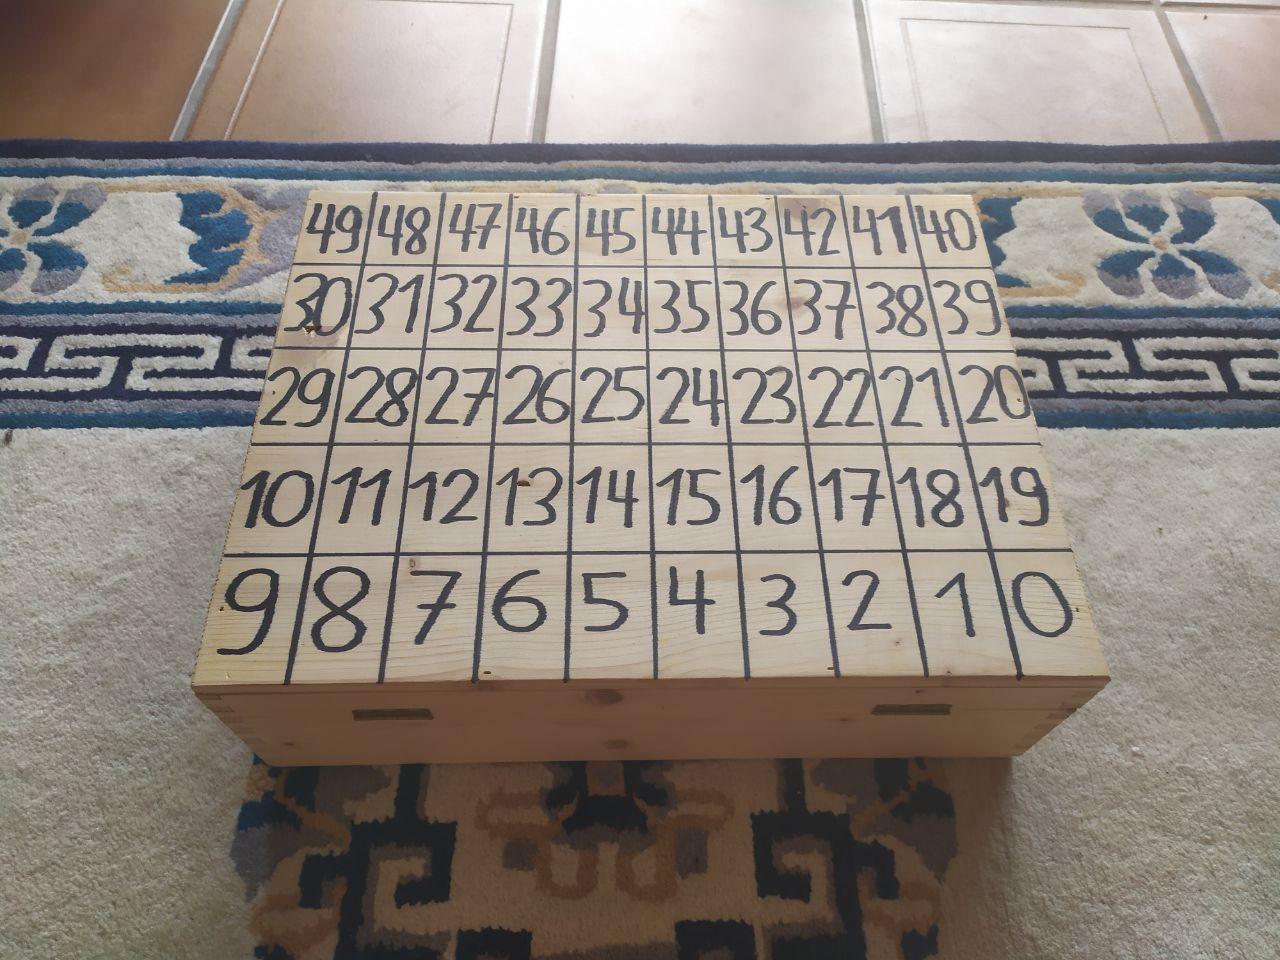 49 48 47 46 45 44 43 42 41 40
30 31 32 33 34 35 36 37 38 39
29 28 27 26 25 24 23 22 21 20
10 11 12 13 14 15 16 17 18 19
9 8 7 6 5 4 3 2 1 0